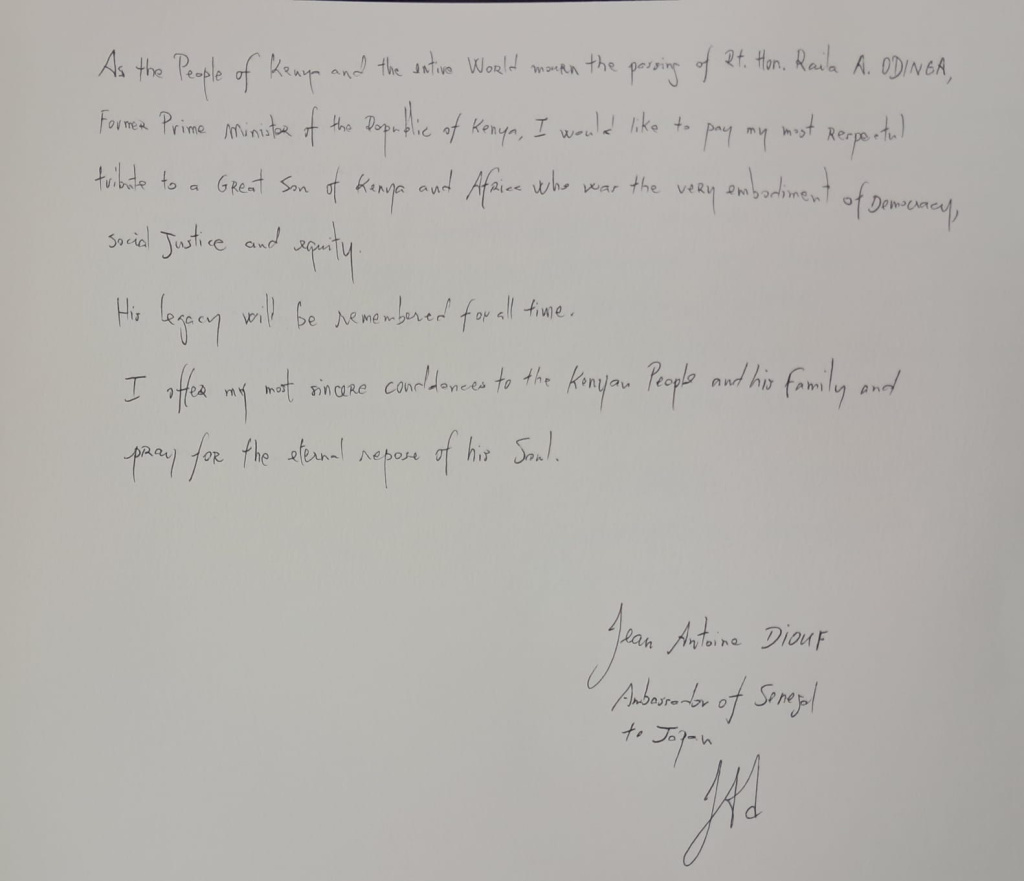 As the People of Kenya and the entire World mourn the passing of Rt. Hon. Raila A. ODINGA,
Former Prime Minister of the Republic of Kenya, I would like to pay my most Respectful
tribute to a Great Son of Kenya and Africa who was the very embodiment of Democracy,
social Justice and equity.
His legacy will be remembered for all time.
I offer my most sincere condolences to the Kenyan People and his family and
pray for the eternal repose of his Soul.
Jean Antoine DIOUF
Ambassador of Senegal
to Japan